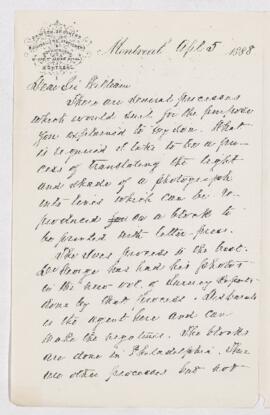 Montreal Apl 5 1888
Dear Sir William
There are several processes
which would suit for the purpose
you explained to
is required I take to be a pro-
cess of translating the light
and shade of a photograph
into lines which can be re-
produced on a block to
be printed with letter-press.
The Ives process is the best.
Dr George has had his photos
in the new vol. of Survey Reports
done by that process.
is the agent here and can
make the negatives. The blocks
are done in Philadelphia. There
are other processes but not